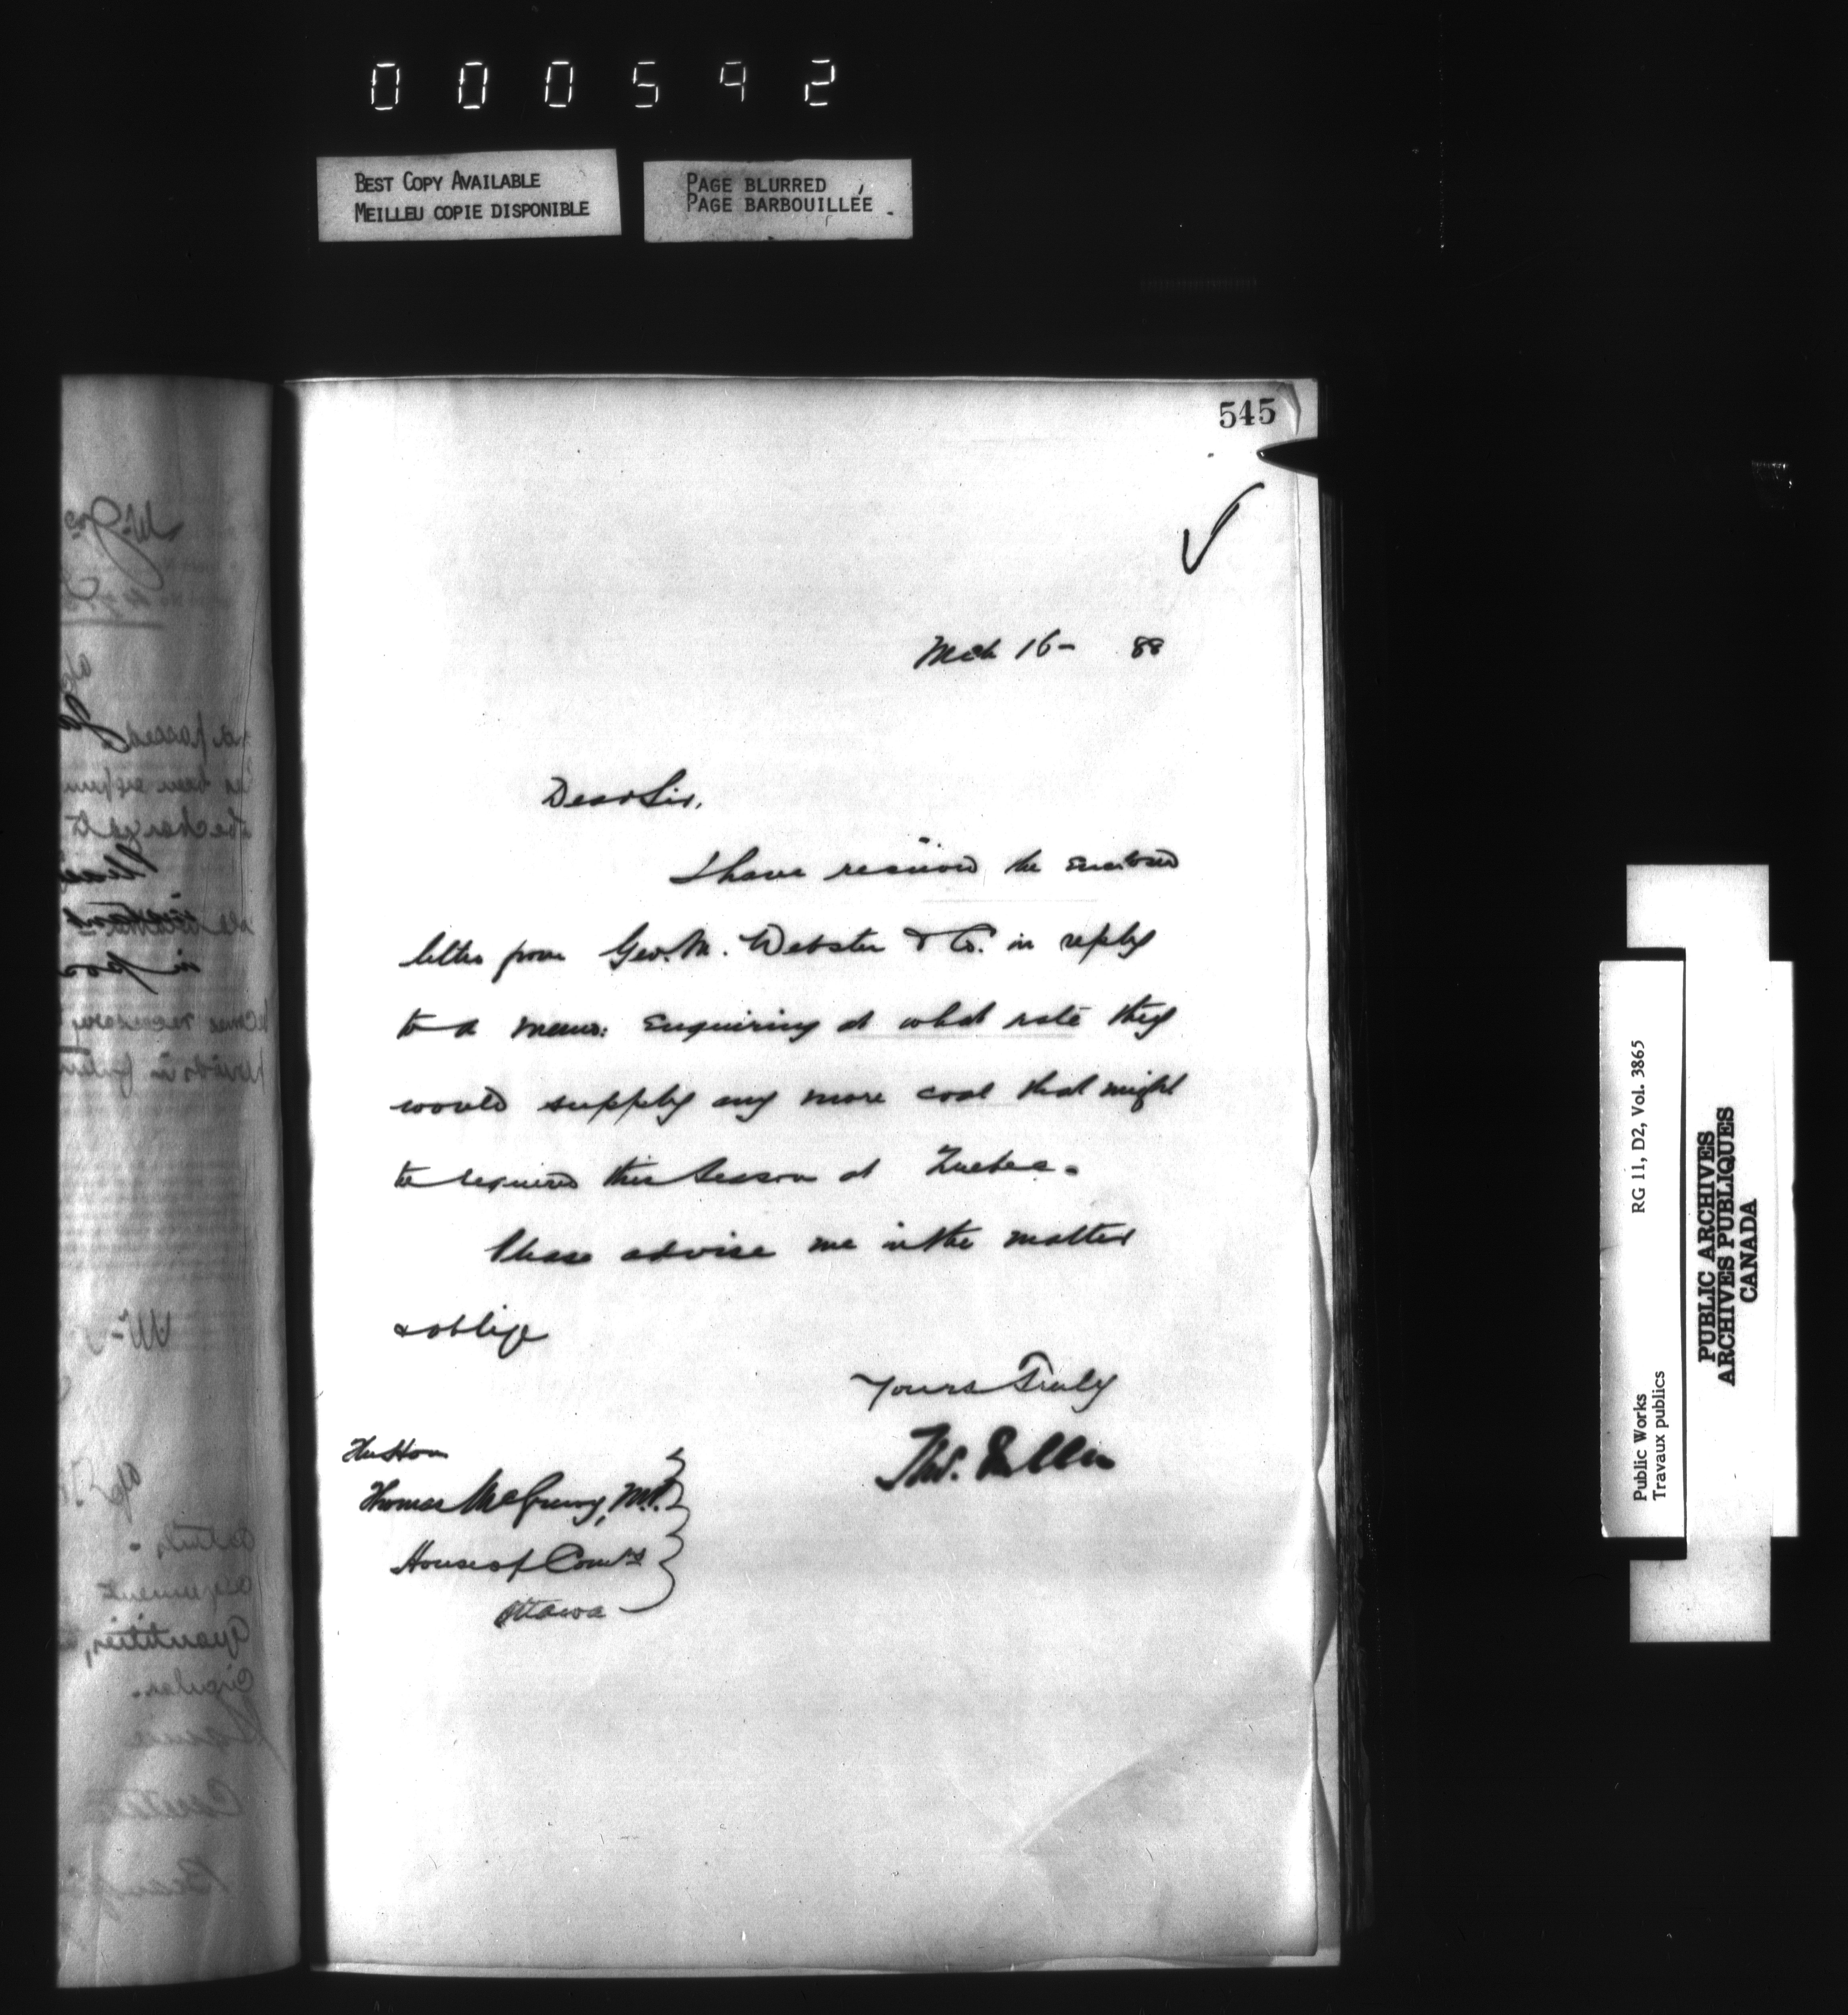 000592
BEST COPY AVAILABLE
MEILLEU COPIE DISPONIBLE
PAGE BLURRED
PAGE BARBOUILLÉE
545
Mch 16- 88
Dear Sir,
I have received the enclosed
letter from Geo. M. Webster & Co. in reply
to a memo: enquiring at what rate they
would supply any more coal that might
be required this Season at Quebec.
Please advise me in the matter
& oblige
Yours Truly
Thos. Fuller
The Hon
Thomas McGreevy, M.P.
House of Com
Ottawa
RG 11, D2, Vol. 3865
Public Works
Travaux publics
PUBLIC ARCHIVES
ARCHIVES PUBLIQUES
CANADA